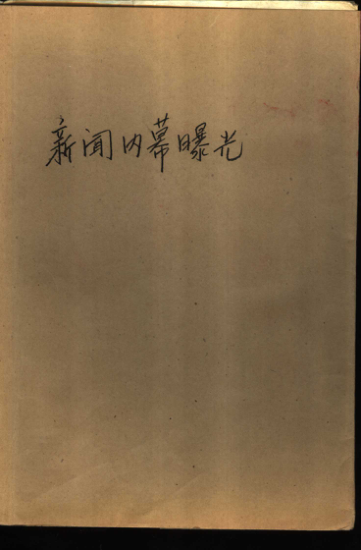 新闻内幕曝光